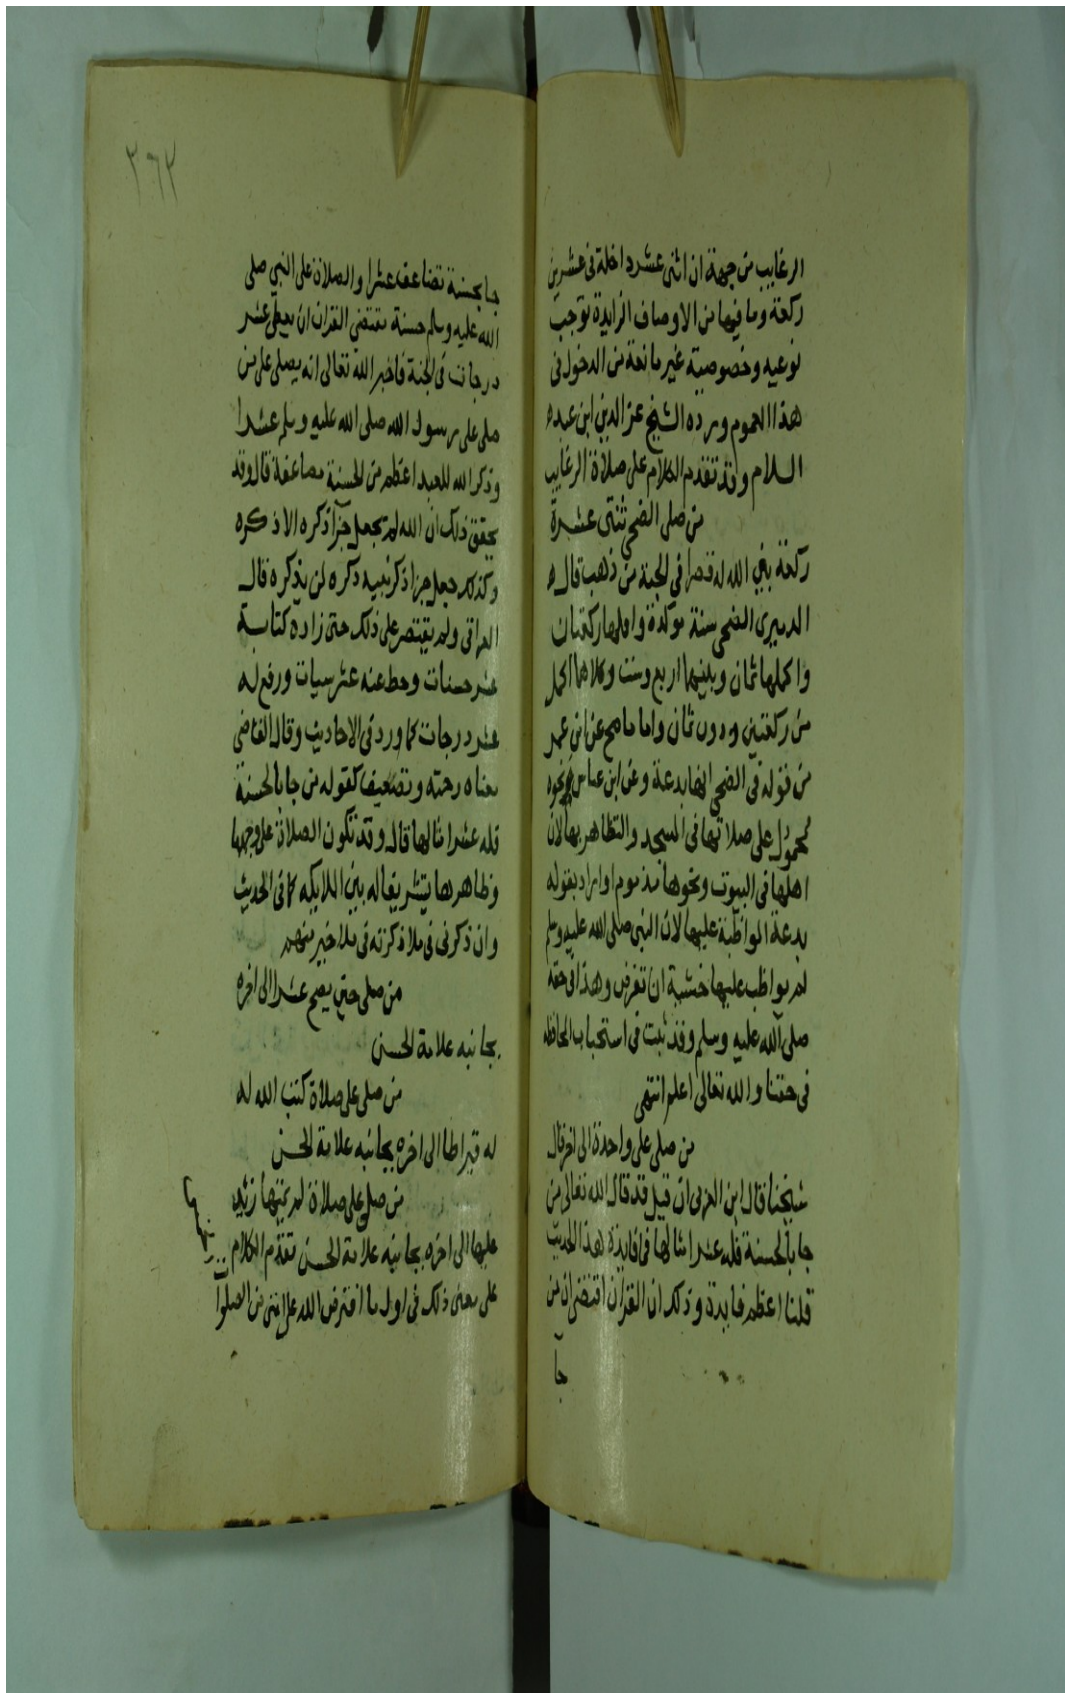 الرغايب من جهة ان اثنى عشر داخلة فى عشرين
ركعة وما فيها من الاوصاف الزايدة توجب
نوعيه وخصوصية غير مانعة من الدخول فى
هذا العموم ورده الشيخ عز الدين ابن عبد ه
السلام وقد تقدم الكلام على صلاة الرغايب
من صلى الضحى ثنتى عشرة
ركعة بنى الله له قصرا فى الجنة من ذهب قال ه
الدميرى الضحى سنة موكدة واقلها ركعتان
واكملها ثمان وبينهما اربع وست وكلاهما اكمل
من ركعتين ودون ثمان واما ما صح عن ابن عمر
من قوله فى الضحى انها بدعة وعن ابن عباس نحوه
محمول على صلاتها فى المسجد والتظاهر بها لان
اهلها فى البيوت ونحوها مذموم او اراد بقوله
بدعة المواظبة عليها لان النبى صلى الله عليه وسلم
لم يواظب عليها خشية ان تفرض وهذا فى حقه
صلى الله عليه وسلم وقد ثبت فى استحباب المحافظه
فى حقنا والله تعالى اعلم انتهى
من صلى على واحدة الى اخر قال
شيخنا قال ابن العربى ان قيل قد قال الله تعالى من
جا بالحسنة فله عشر امثالها فما فايدة هذا الحديث
قلنا اعظم فايدة وذلك ان القران اقتضى ان من
جآ
٣٦٢
جا بحسنة تضاعف عشرا والصلاة على النبي صلى
الله عليه وسلم حسنة مقتضى القران ان يعطى عشر
درجات فى الجنة فاخبر الله تعالى انه يصلى على من
صلى على رسول الله صلى الله عليه وسلم عشرا
وذكر الله للعبد اعظم من الحسنة مضاعفة قال وقد
يحقق ذلك ان الله لم يجعل جزآ ذكره الا ذكره
وكذلك جعل جزا ذكر نبيه ذكره لمن يذكره قال
العراقى ولم يقتصر على ذلك حتى زاده كتابة
عشر حسنات وحط عنه عشر سيات ورفع له
عشر درجات كما ورد فى الاحاديث وقال القاضى
معناه رحمته وتضعيف كقوله من جا بالحسنة
فله عشر امثالها قال وقد تكون الصلاة على وجهها
وظاهرها يتشريفا له بين الملايكه كما فى الحديث
وان ذكرنى فى ملا ذكرته فى ملاء خير منهم
من صلى حتى يصبح عشرا الى اخره
بجانبه علامة الحسن
من صلى على صلاة كتب الله له
له قيراطا الى اخره بجانبه علامة الحسن
من صلى على صلاة لم يتمها زيد
عليها الى اخره بجانبه علامة الحسن تقدم الكلام
على معنى ذلك فى اول ما افترض الله على امتى من الصلوات